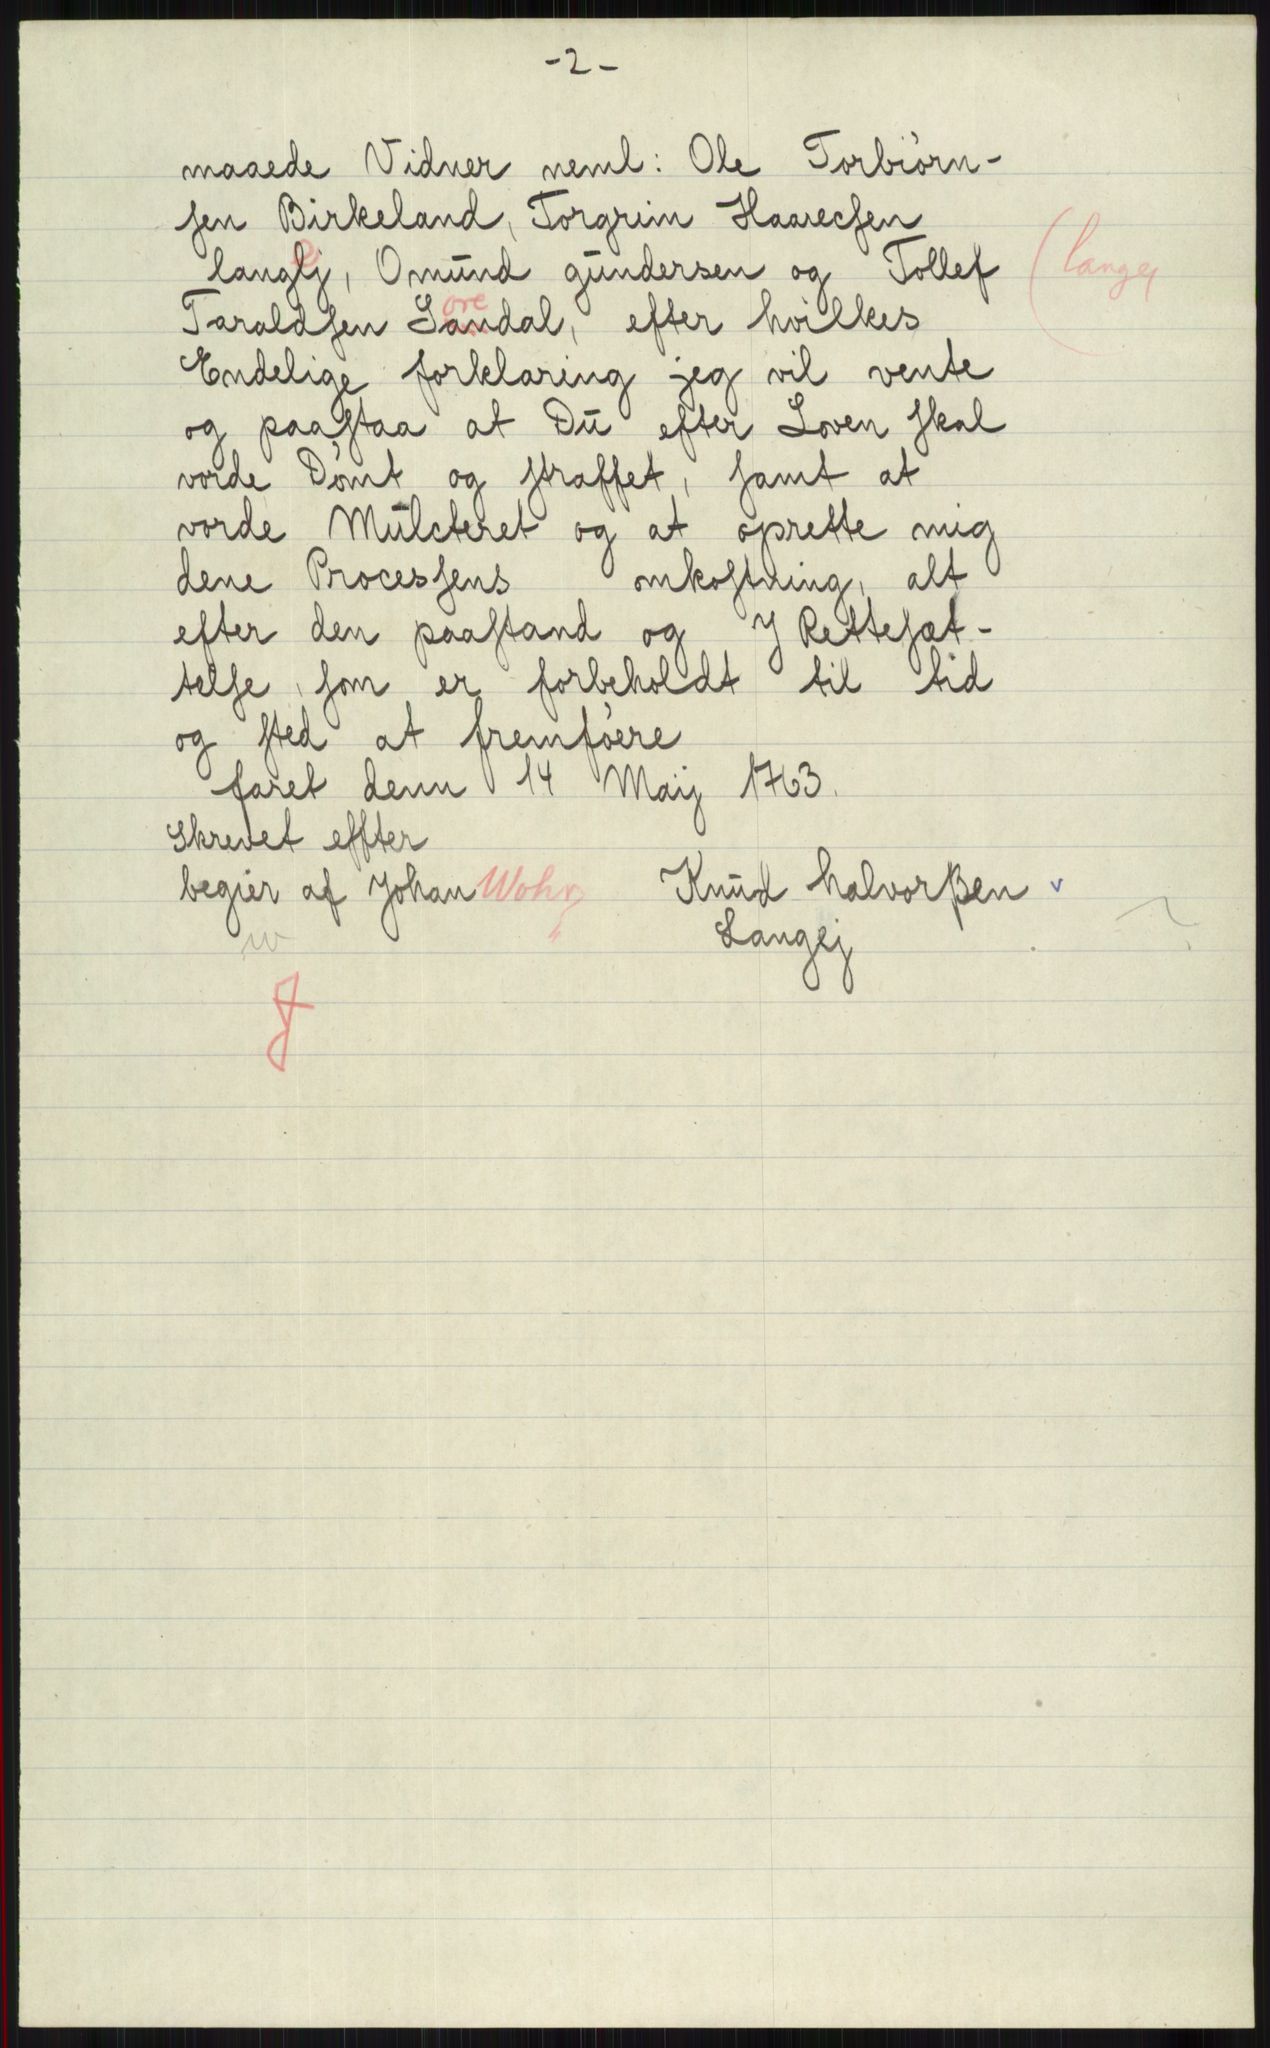 -2-
maaede Vidner neml: Ole Torbiörn-
sen Birkeland, Torgrim Haarecsen
langej, Omūnd gūndersen og Tollef (langej
Taraldsen Sandal, efter hvilkes
ore
Endelige forklaring jeg vil vente
og paastaa at Dū efter Loven skal
vorde Dömt og straffet, samt at
vorde Mūlcteret og at oprette mig
dene Processens omkostning, alt
efter den paastand og J Rettesæt-
telse, som er forbeholdt til tid
og sted at fremföere
faret denn 14 Maij 1763.
Skrevet effter
begier af Johan Wohr Knūd halvorßen v
w Langej
J